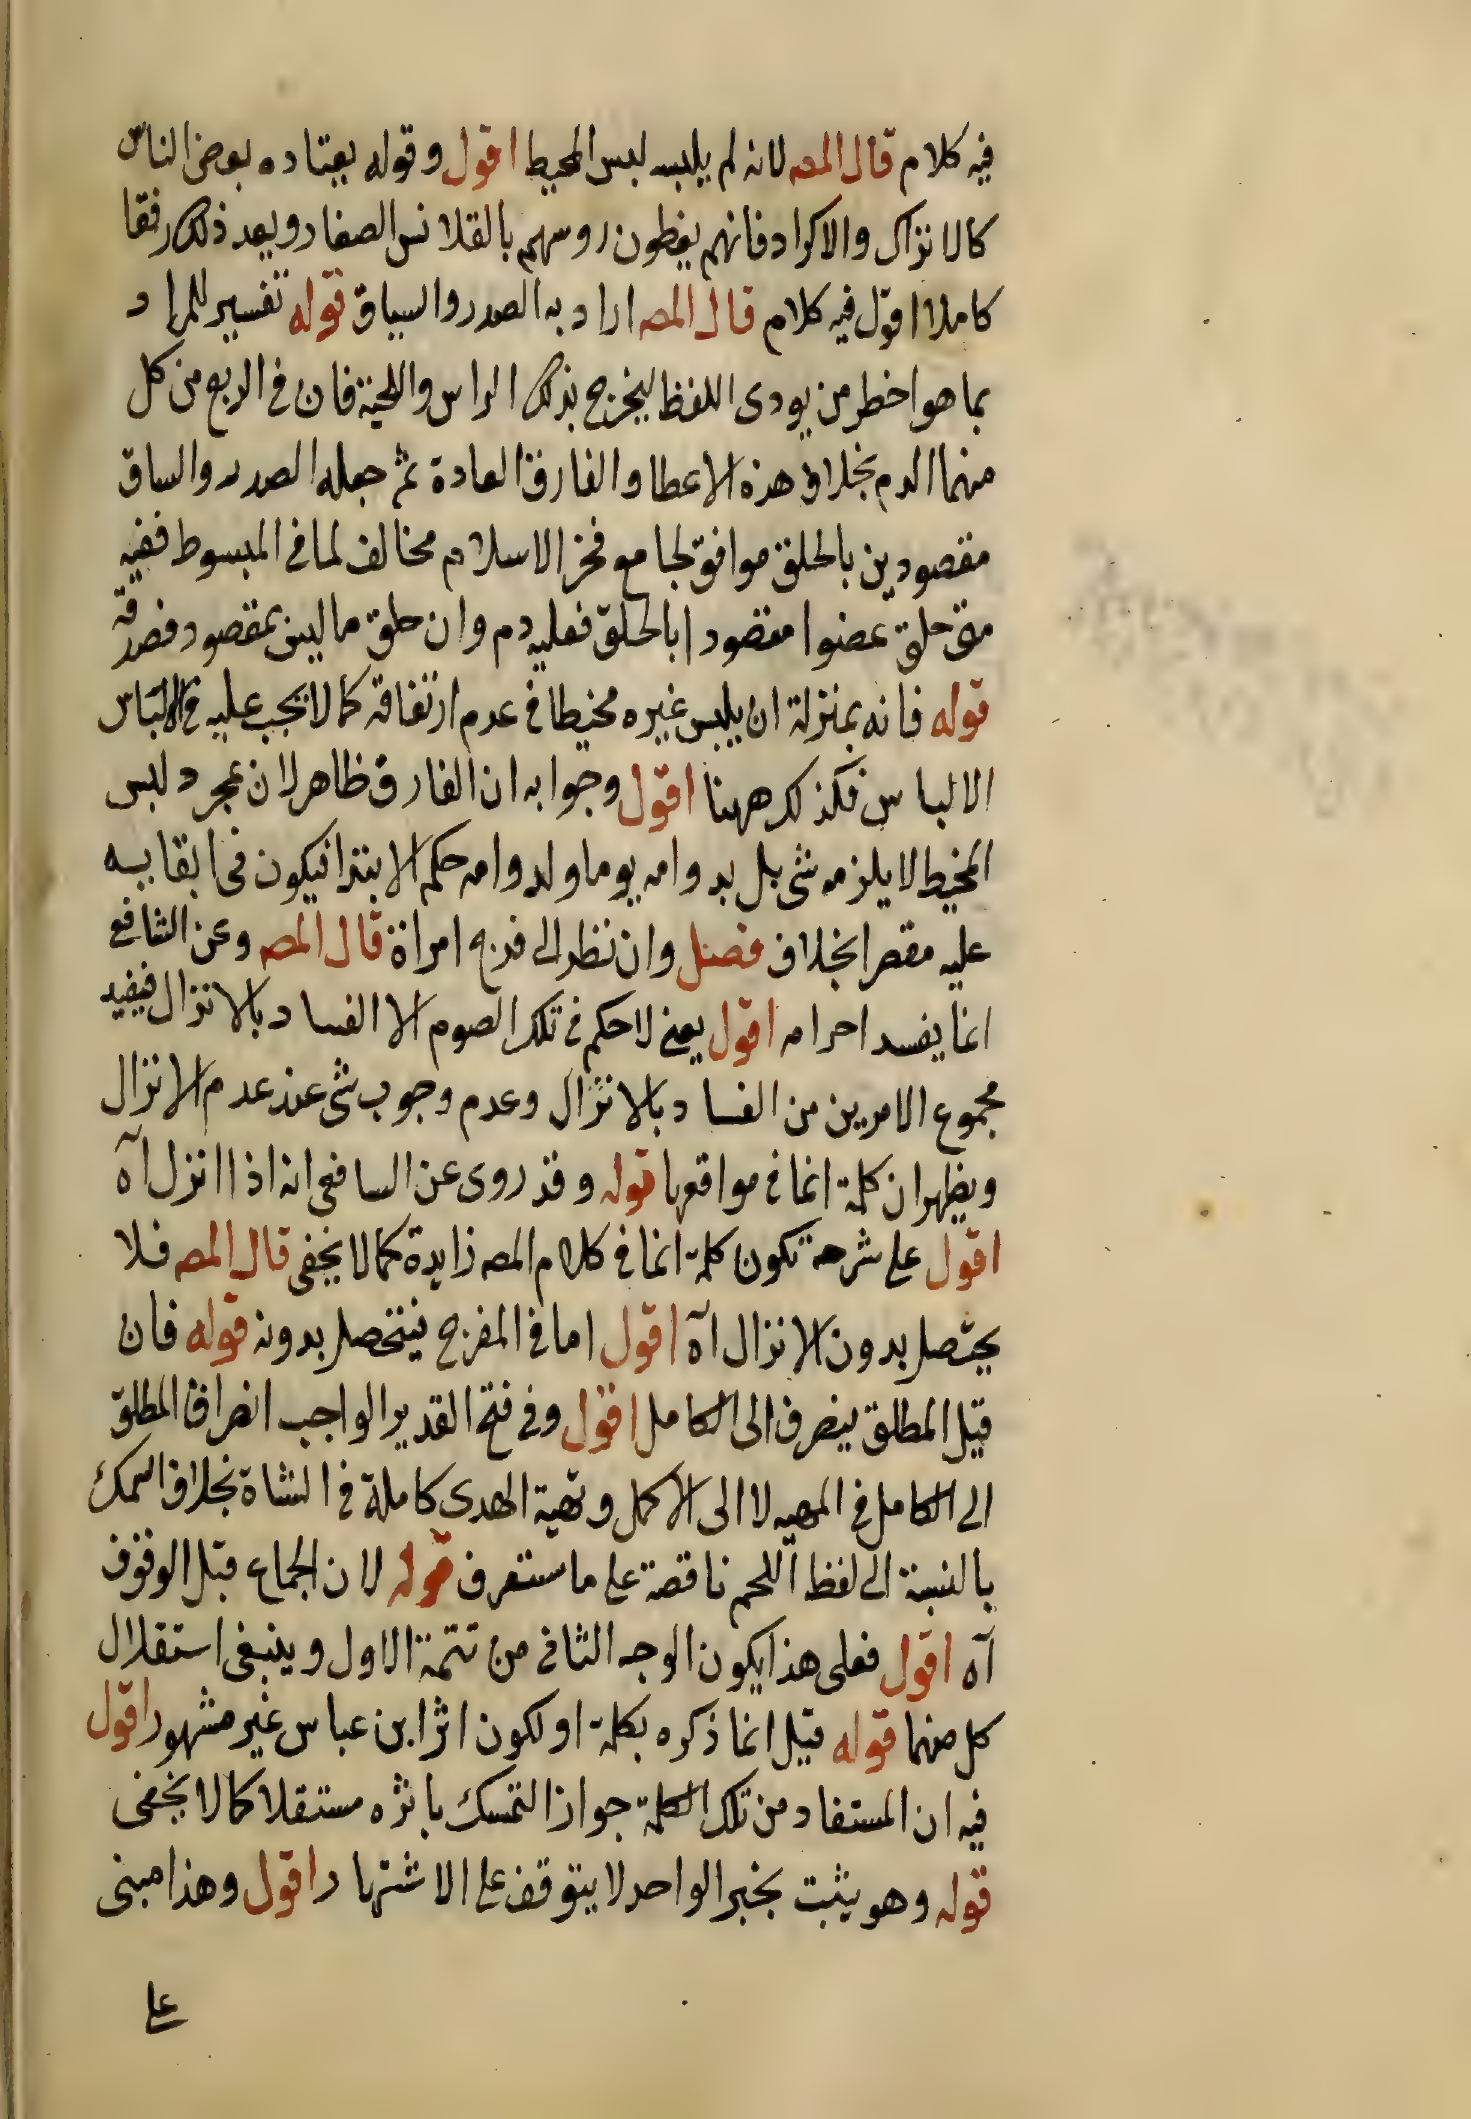 فيه كلام قال المصـ لانه لم يلبسه لبس المخيط اقول وقوله يعتاده بعض الناس
كالاتراك والاكراد فانهم يغطون روسهم بالقلانس الصغار ويعد ذلك رفقا
كاملا اقول فيه كلام قال المصـ اراد به الصدر والساق قوله تفسير للمراد
بما هو اخطر من يودى اللفظ ليخرج بذلك الراس واللحية فان في الربع من كل
منهما الدم بخلاف هذه الاعطا والفارق العادة ثم جعله الصدر والساق
مقصودين بالحلق موافق لجامع فخر الاسلام مخالف لما في المبسوط ففيه
متى حلق عضوا مقصودا بالحلق فعليه دم وان حلق ما ليس بمقصود فصدقة
قوله فانه بمنزلة ان يلبس غيره مخيطا في عدم ارتفاقه كما لا يجب عليه في الالباس
الالباس فكذلك ههنا اقول وجوابه ان الفارق ظاهر لان بمجرد لبس
المخيط لا يلزمه شى بل بدوامه يوما ولدوامه حكم الابتدا فيكون في ابقايه
عليه مقصرا بخلاف فصل وان نظر الى فرج امراة قال المصـ وعن الشافعي
انما يفسد احرامه اقول يعني لا حكم في تلك الصوم الا الفساد بالانزال فيفيد
مجموع الامرين من الفساد بالانزال وعدم وجوب شى عند عدم الانزال
ويظهر ان كلمة انما في مواقعها قوله وقد روى عن السافعى انه اذا انزل آه
اقول على شرحه تكون كلمة انما في كلام المصـ زايدة كما لا يخفى قال المصـ فلا
يحصل بدون الانزال آه اقول اما في المفرج فيتحصل بدونه قوله فان
قيل المطلق ينصرف الى الكامل اقول وفي فتح القدير الواجب انصراف المطلق
الى الكامل في المهيه لا الى الاكمل وتهية الهدى كاملة في الشاة بخلاف السمك
بالنسبة الى لفظ اللحم ناقصة على ما ستعرف قوله لان الجماع قبل الوقوف
آه اقول فعلى هذا يكون الوجه الثاني من تتمة الاول وينبغى استقلال
كل منهما قوله قيل انما ذكره بكلمة او لكون اثر ابن عباس غير مشهور اقول
فيه ان المستفاد من تلك الكلمة جواز التمسك باثره مستقلا كما لا يخفى
قوله وهو يثبت بخبر الواحد لا يتوقف على الاشتهار اقول وهذا مبنى
على